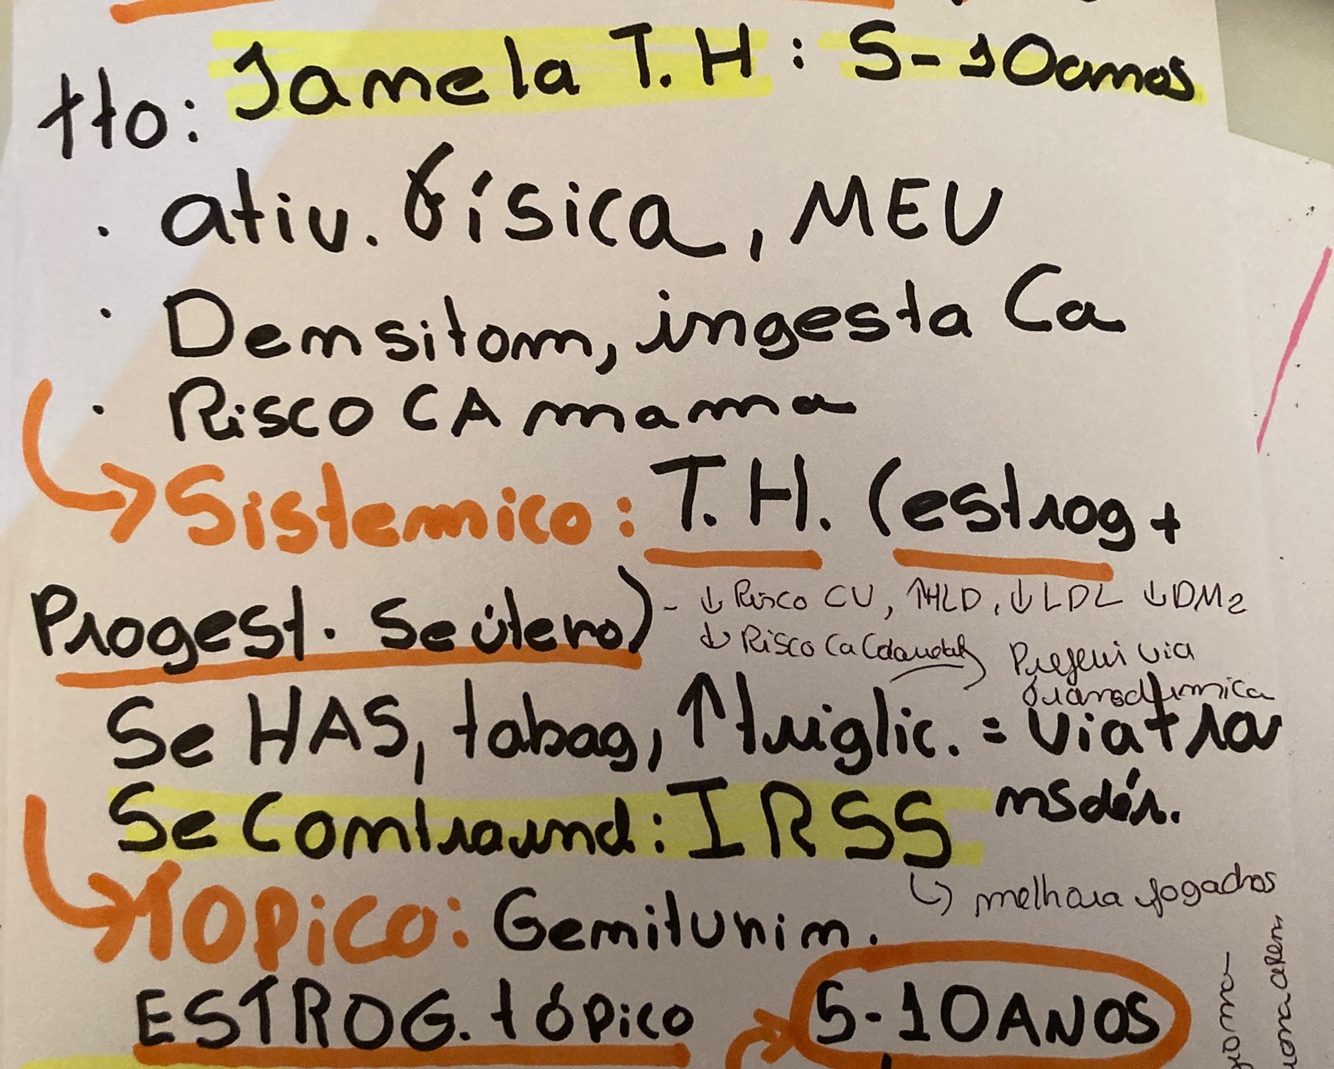 tto: Janela T.H: 5-10anos
. ativ. física, MEV
. Densitom, ingesta Ca
. Risco CA mama
→ Sistemico: T.H. (estrog +
Progest. Se útero)
- ↓ Risco CV, ↑HLD, ↓LDL ↓DM2
↓ Risco Ca Colorretal
Preferi via
transdérmica
Se HAS, tabag, ↑triglic. = via tra
nsdér.
Se Contraind: IRSS
↳ melhora fogachos
→ TOPiCO: Geniturin.
ESTROG. tópico → 5-10 ANOS